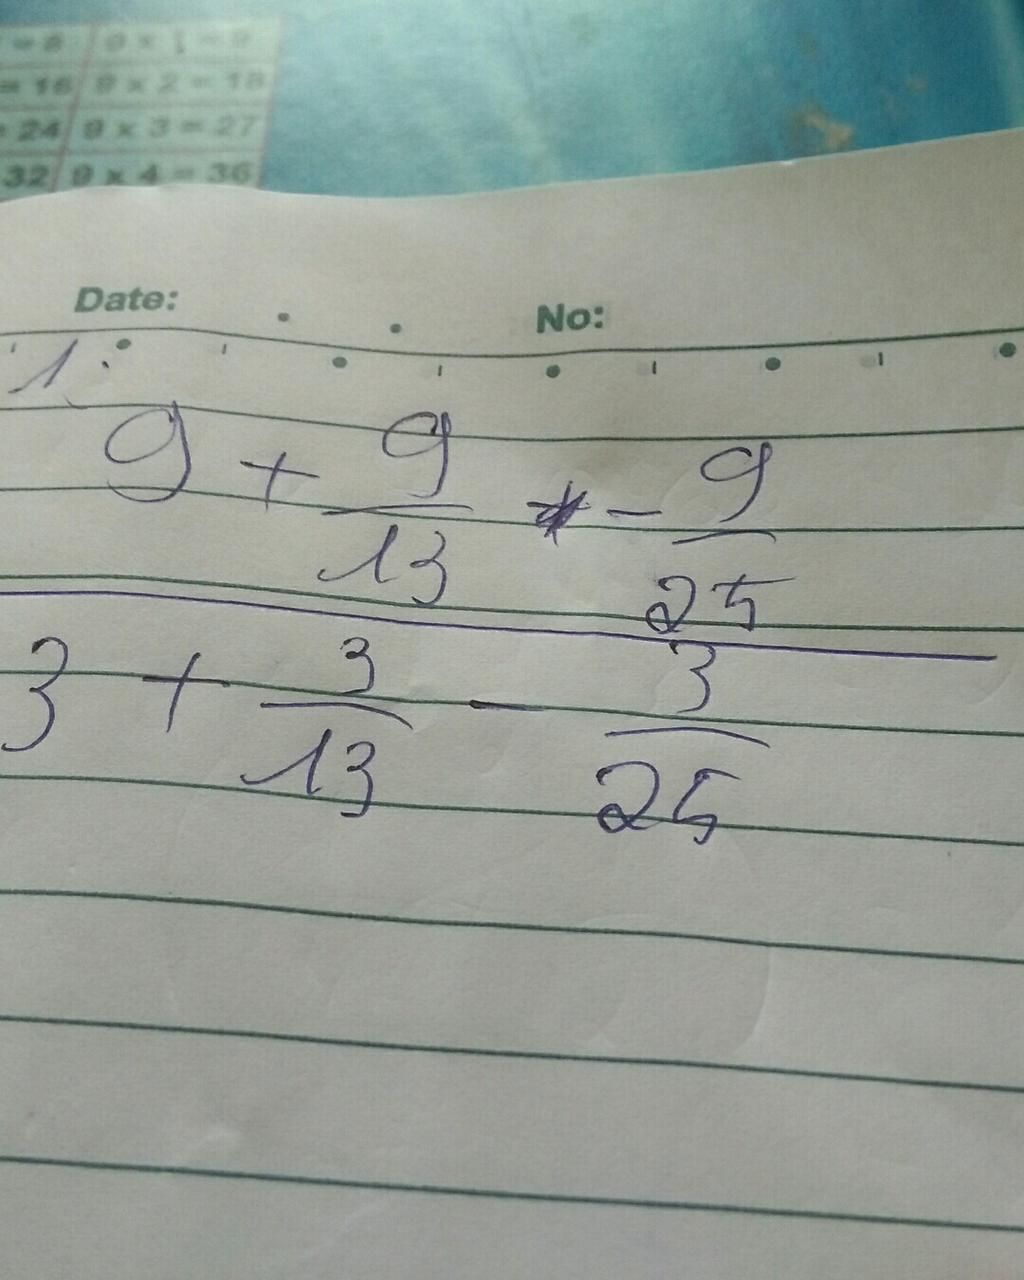 = 8 9 × 1 = 9
= 16 9 × 2 = 18
= 24 9 × 3 = 27
32 9 × 4 = 36
Date: No:
1.
9 + 9/13 - 9/25
3 + 3/13 - 3/25